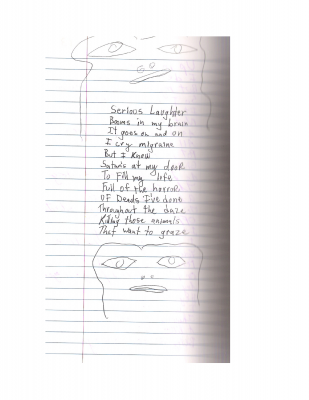 Serious Laughter
Booms in my brain
It goes on and on
I cry migraine
But I Know
Satan's at my door
To Fill my life
Full of the horror
OF Deads I've done
Throughout the daze
Killing those animals
That want to graze